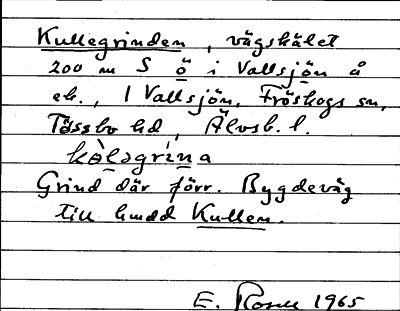 Kullegrinden, vägskälet
200 m S ö i Vallsjön å
ek., I Vallsjön, Fröskogs sn,
Tössbo hd, Älvsb. l.
kòl̥əgrìna
Grind där förr. Bygdeväg
till hmdd Kullen.
E. Rosell 1965